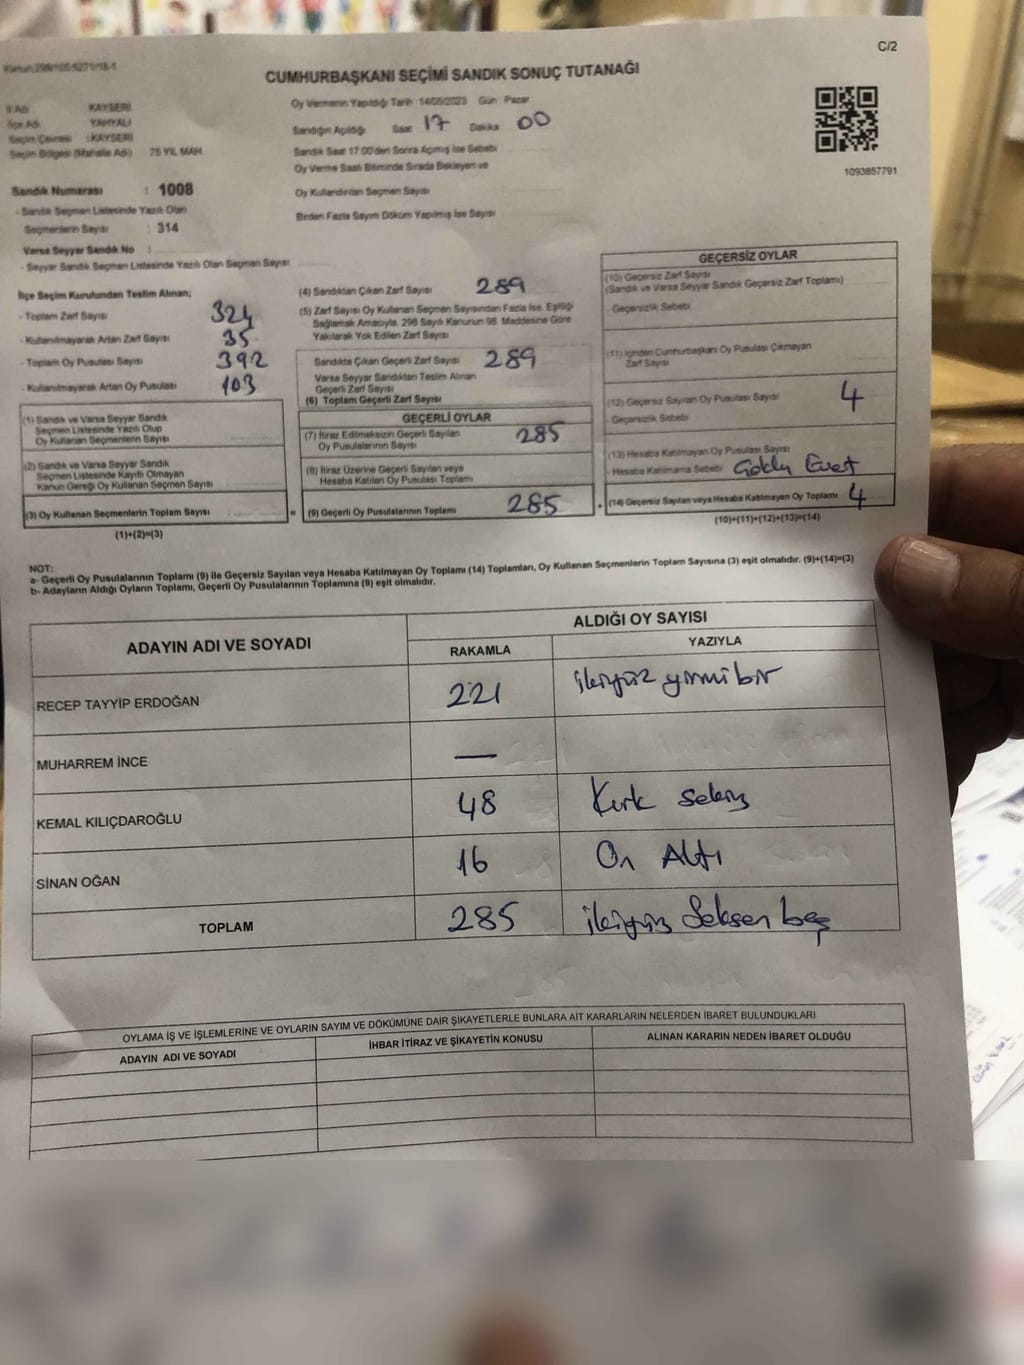 C/2
CUMHURBAŞKANI SEÇİMİ SANDIK SONUÇ TUTANAĞI
İl Adı KAYSERİ
İlçe Adı YAHYALI
Seçim Çevresi : KAYSERİ
Seçim Bölgesi (Mahalle Adı) 75 YIL MAH.
Oy Vermenin Yapıldığı Tarih 14/05/2023 Gün Pazar
Sandığın Açıldığı Saat 17 Dakika 00
Sandık Saat 17:00'den Sonra Açmış İse Sebebi
Oy Verme Saati Bitiminde Sırada Bekleyen ve
Oy Kullandırılan Seçmen Sayısı
Birden Fazla Sayım Döküm Yapılmış İse Sayısı
1093857791
Sandık Numarası : 1008
- Sandık Seçmen Listesinde Yazılı Olan
Seçmenlerin Sayısı : 314
Varsa Seyyar Sandık No :
- Seyyar Sandık Seçmen Listesinde Yazılı Olan Seçmen Sayısı
İlçe Seçim Kurulundan Teslim Alınan;
- Toplam Zarf Sayısı 324
- Kullanılmayarak Artan Zarf Sayısı 35
- Toplam Oy Pusulası Sayısı 392
- Kullanılmayarak Artan Oy Pusulası 103
(1) Sandık ve Varsa Seyyar Sandık
Seçmen Listesinde Yazılı Olup
Oy Kullanan Seçmenlerin Sayısı
(2) Sandık ve Varsa Seyyar Sandık
Seçmen Listesinde Kayıtlı Olmayan
Kanun Gereği Oy Kullanan Seçmen Sayısı
(3) Oy Kullanan Seçmenlerin Toplam Sayısı
(1)+(2)=(3)
(4) Sandıktan Çıkan Zarf Sayısı 289
(5) Zarf Sayısı Oy Kullanan Seçmen Sayısından Fazla İse, Eşitliği
Sağlamak Amacıyla, 298 Sayılı Kanunun 98. Maddesine Göre
Yakılarak Yok Edilen Zarf Sayısı
Sandıkta Çıkan Geçerli Zarf Sayısı 289
Varsa Seyyar Sandıktan Teslim Alınan
Geçerli Zarf Sayısı
(6) Toplam Geçerli Zarf Sayısı
GEÇERLİ OYLAR
(7) İtiraz Edilmeksizin Geçerli Sayılan
Oy Pusulalarının Sayısı 285
(8) İtiraz Üzerine Geçerli Sayılan veya
Hesaba Katılan Oy Pusulası Toplamı
= (9) Geçerli Oy Pusulalarının Toplamı 285
GEÇERSİZ OYLAR
(10) Geçersiz Zarf Sayısı
(Sandık ve Varsa Seyyar Sandık Geçersiz Zarf Toplamı)
- Geçersizlik Sebebi
(11) İçinden Cumhurbaşkanı Oy Pusulası Çıkmayan
Zarf Sayısı
(12) Geçersiz Sayılan Oy Pusulası Sayısı 4
- Geçersizlik Sebebi
(13) Hesaba Katılmayan Oy Pusulası Sayısı
- Hesaba Katılmama Sebebi
+ (14) Geçersiz Sayılan veya Hesaba Katılmayan Oy Toplamı 4
(10)+(11)+(12)+(13)=(14)
NOT:
a- Geçerli Oy Pusulalarının Toplamı (9) ile Geçersiz Sayılan veya Hesaba Katılmayan Oy Toplamı (14) Toplamları, Oy Kullanan Seçmenlerin Toplam Sayısına (3) eşit olmalıdır. (9)+(14)=(3)
b- Adayların Aldığı Oyların Toplamı, Geçerli Oy Pusulalarının Toplamına (9) eşit olmalıdır.
ADAYIN ADI VE SOYADI ALDIĞI OY SAYISI
RAKAMLA YAZIYLA
RECEP TAYYİP ERDOĞAN 221 ikiyüz yirmi bir
MUHARREM İNCE —
KEMAL KILIÇDAROĞLU 48 Kırk sekiz
SİNAN OĞAN 16 On Altı
TOPLAM 285 ikiyüz Seksen beş
OYLAMA İŞ VE İŞLEMLERİNE VE OYLARIN SAYIM VE DÖKÜMÜNE DAİR ŞİKAYETLERLE BUNLARA AİT KARARLARIN NELERDEN İBARET BULUNDUKLARI
ADAYIN ADI VE SOYADI İHBAR İTİRAZ VE ŞİKAYETİN KONUSU ALINAN KARARIN NEDEN İBARET OLDUĞU